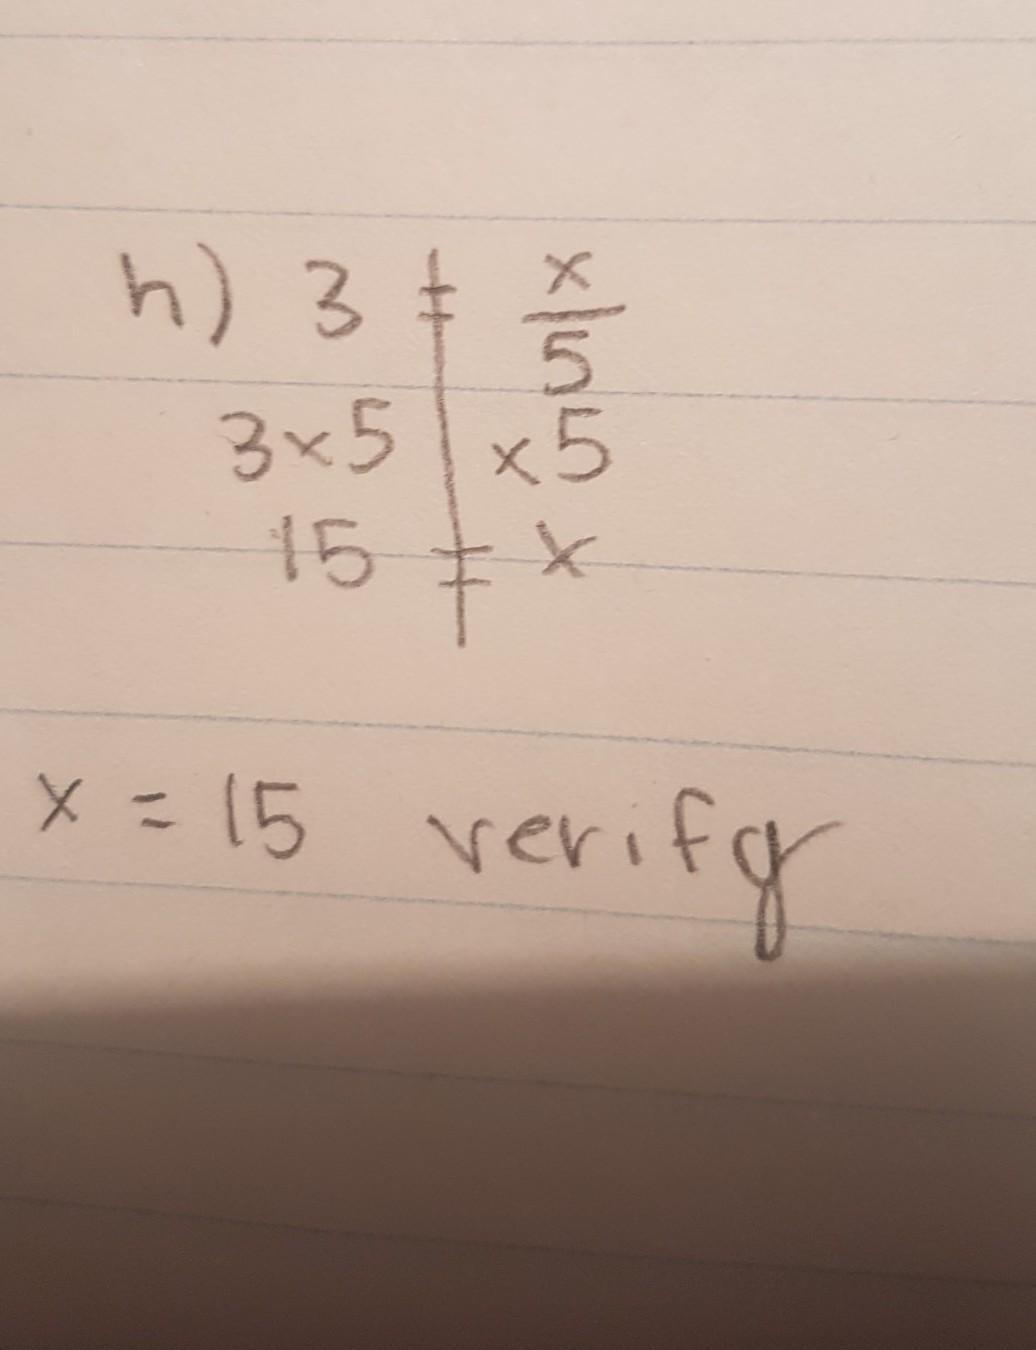 h) 3 = x/5
3x5 x5
15 = x
x = 15 verify